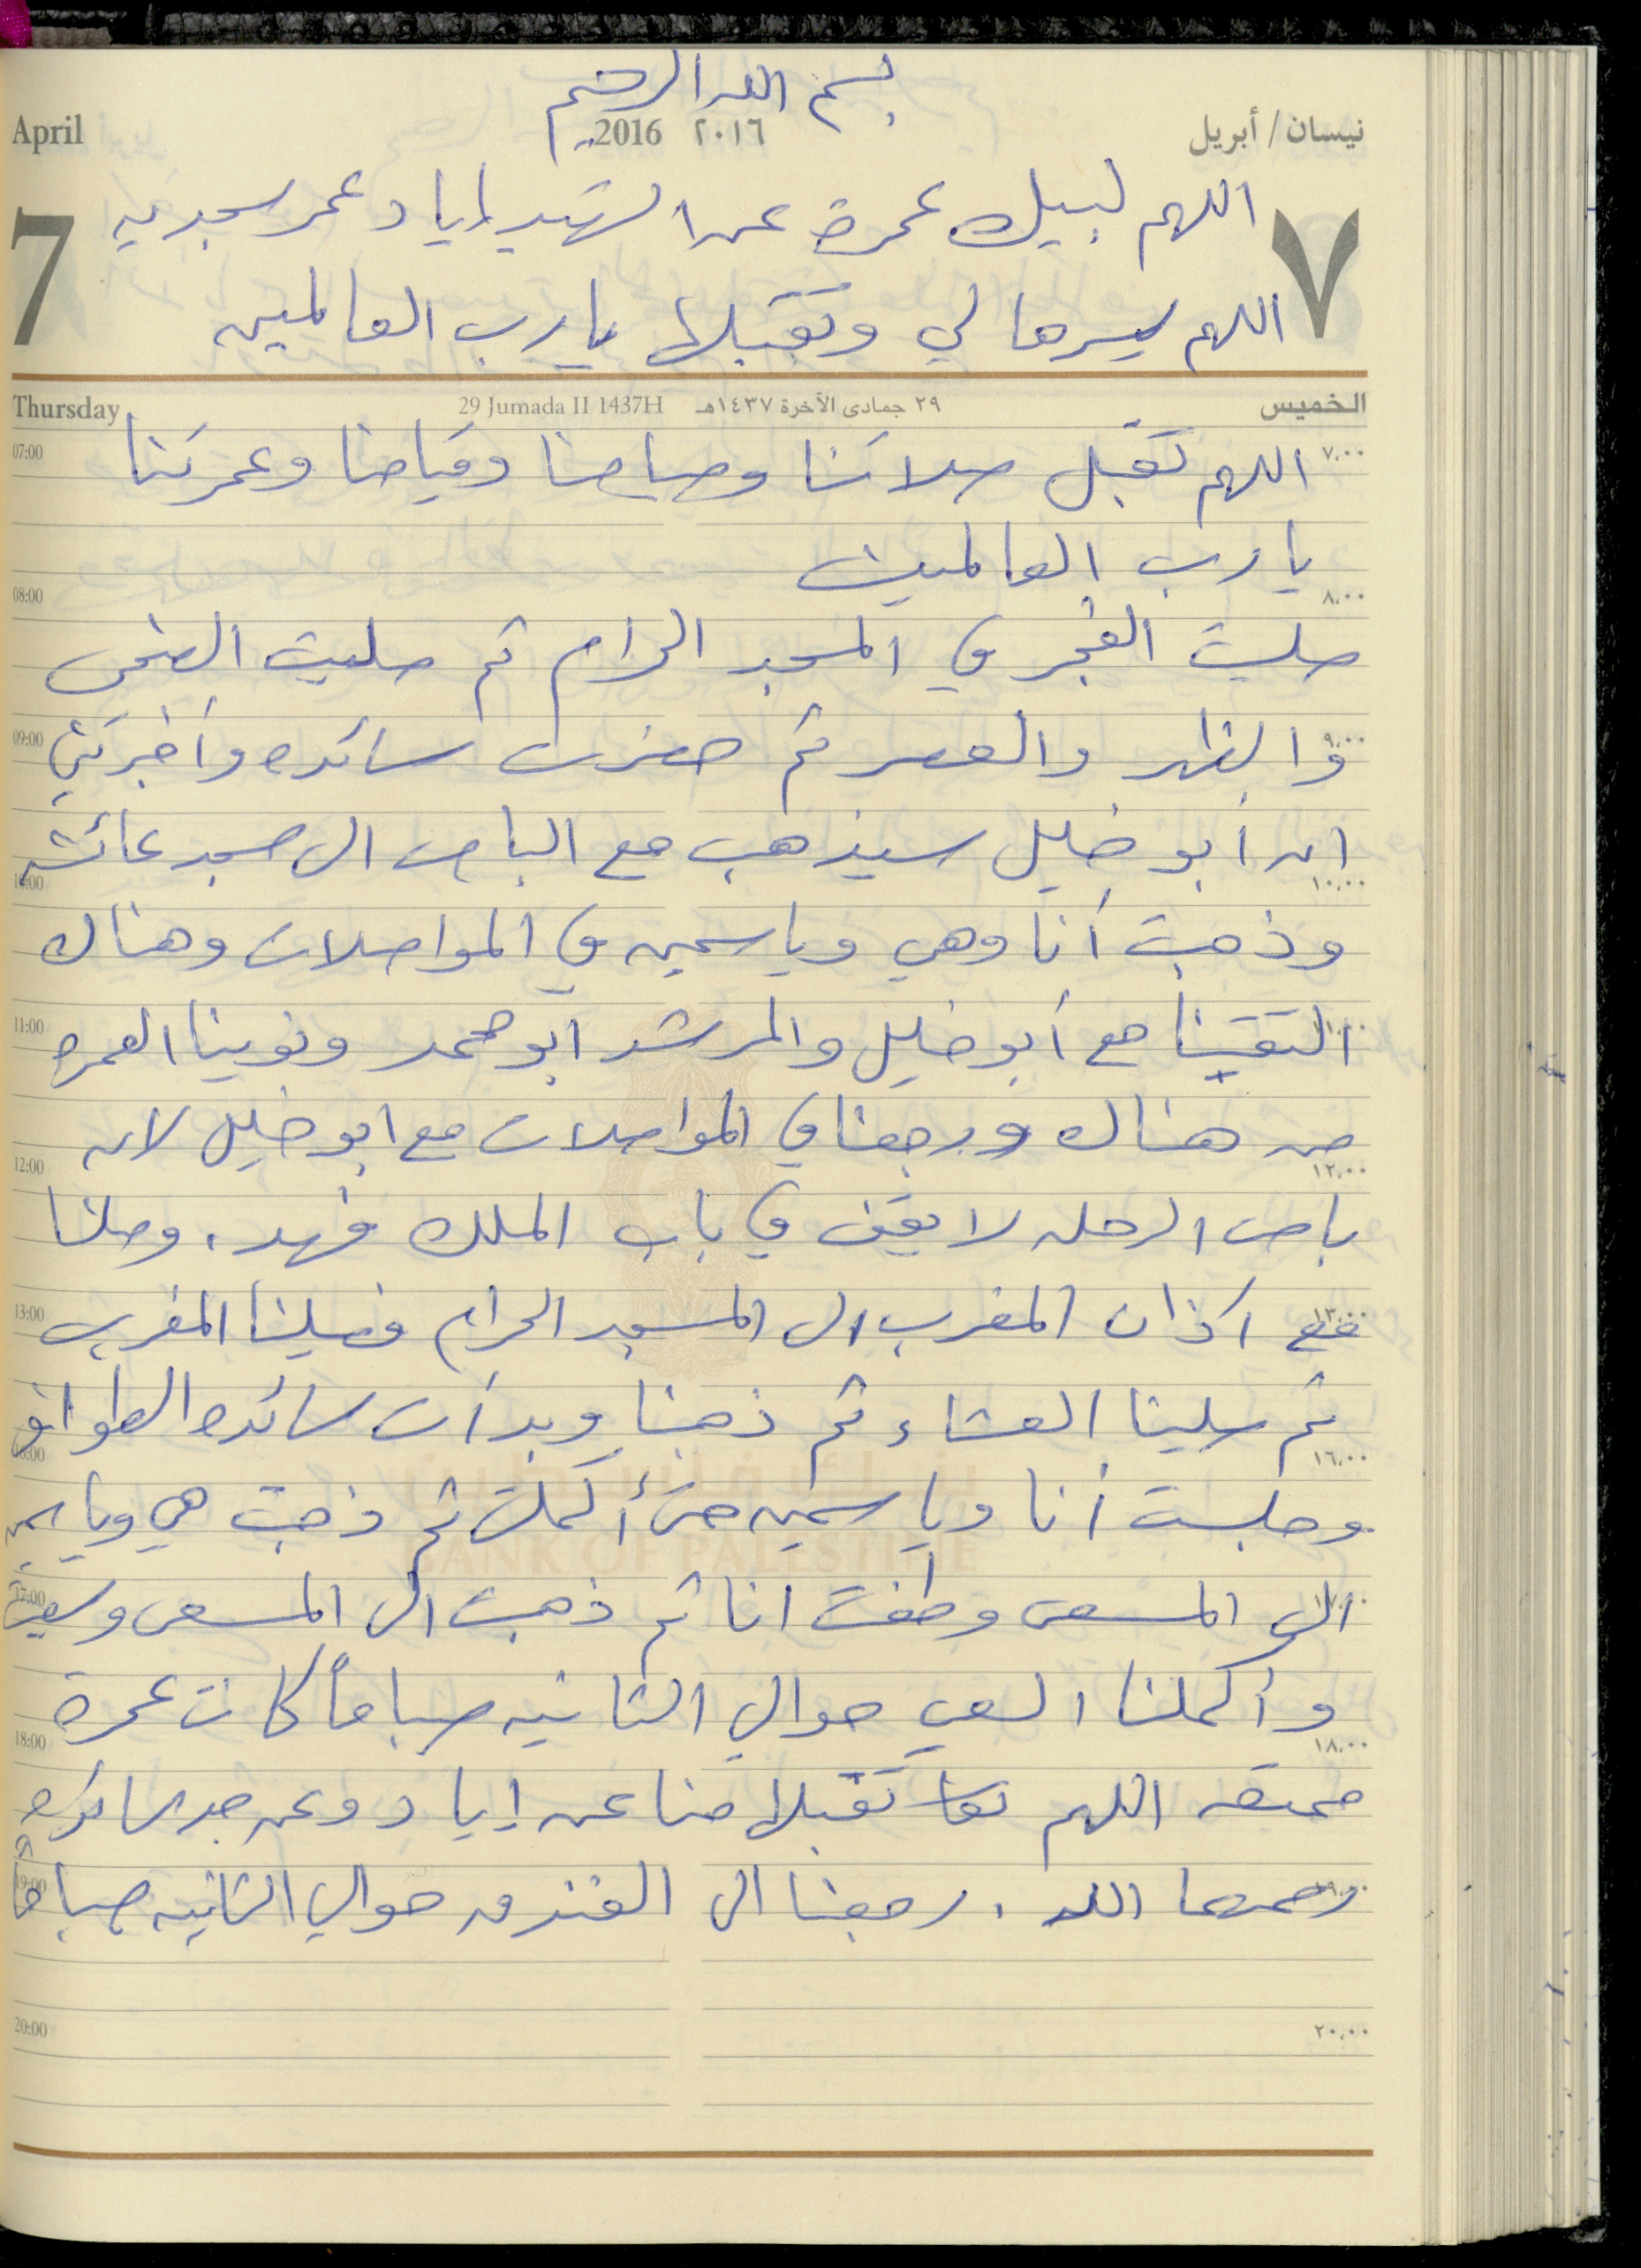 بسم الله الرحيم
April 2016 ٢٠١٦ نيسان / أبريل
7 ٧
اللهم لبيك عمرة عن الشهيد إياد وعمر سجديه
اللهم يسرها لي وتقبلها يا رب العالمين
Thursday 29 Jumada II 1437H ٢٩ جمادى الآخرة ١٤٣٧هـ الخميس
07:00 ٧,٠٠
اللهم تقبل صلاتنا وصيامنا وقيامنا وعمرتنا
يا رب العالمين
08:00 ٨,٠٠
صليت الفجر في المسجد الحرام ثم صليت الضحى
09:00 ٩,٠٠
والظهر والعصر ثم حضرت سائده وأخبرتني
ان أبو خليل سيذهب مع الباص الى مسجد عائشه
10:00 ١٠,٠٠
وذهبت أنا وهي وياسمين في المواصلات وهناك
11:00 ١١,٠٠
التقينا مع أبو خليل والمرشد ابو محمد ونوينا العمره
من هناك ورجعنا في المواصلات مع ابو خليل لان
12:00 ١٢,٠٠
باص الرحله لا يقف في باب الملك فهد. وصلنا
13:00 ١٣,٠٠
مع اذان المغرب الى المسجد الحرام فصلينا المغرب
ثم صلينا العشاء ثم ذهبنا وبدأت سائده الطواف
16:00 ١٦,٠٠
وجلست أنا وياسمين حتى أكملت ثم ذهبت هي وياسمين
بنك فلسطين
BANK OF PALESTINE
17:00 ١٧,٠٠
الى المسعى وطفت انا ثم ذهبت الى المسعى وسعيت
وأكملنا السعي حوالي الثانيه صباحاً كانت عمرة
18:00 ١٨,٠٠
ممتعه اللهم تقبلها منا عن إياد وعن جد سائده
19:00 ١٩,٠٠
رحمهما الله. رجعنا الى الفندق حوالي الثانيه صباحاً
20:00 ٢٠,٠٠